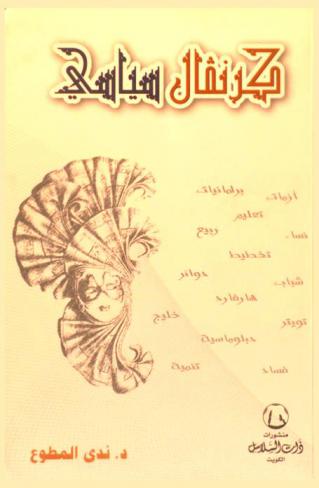 كرنڤال سياسي
أزمات برلمانيات
تعليم
نساء ربيع
تخطيط
شباب دوائر
هارفارد
تويتر خليج
دبلوماسية
فساد تنمية
منشورات
ذات السلاسل
الكويت
د. ندى المطوع